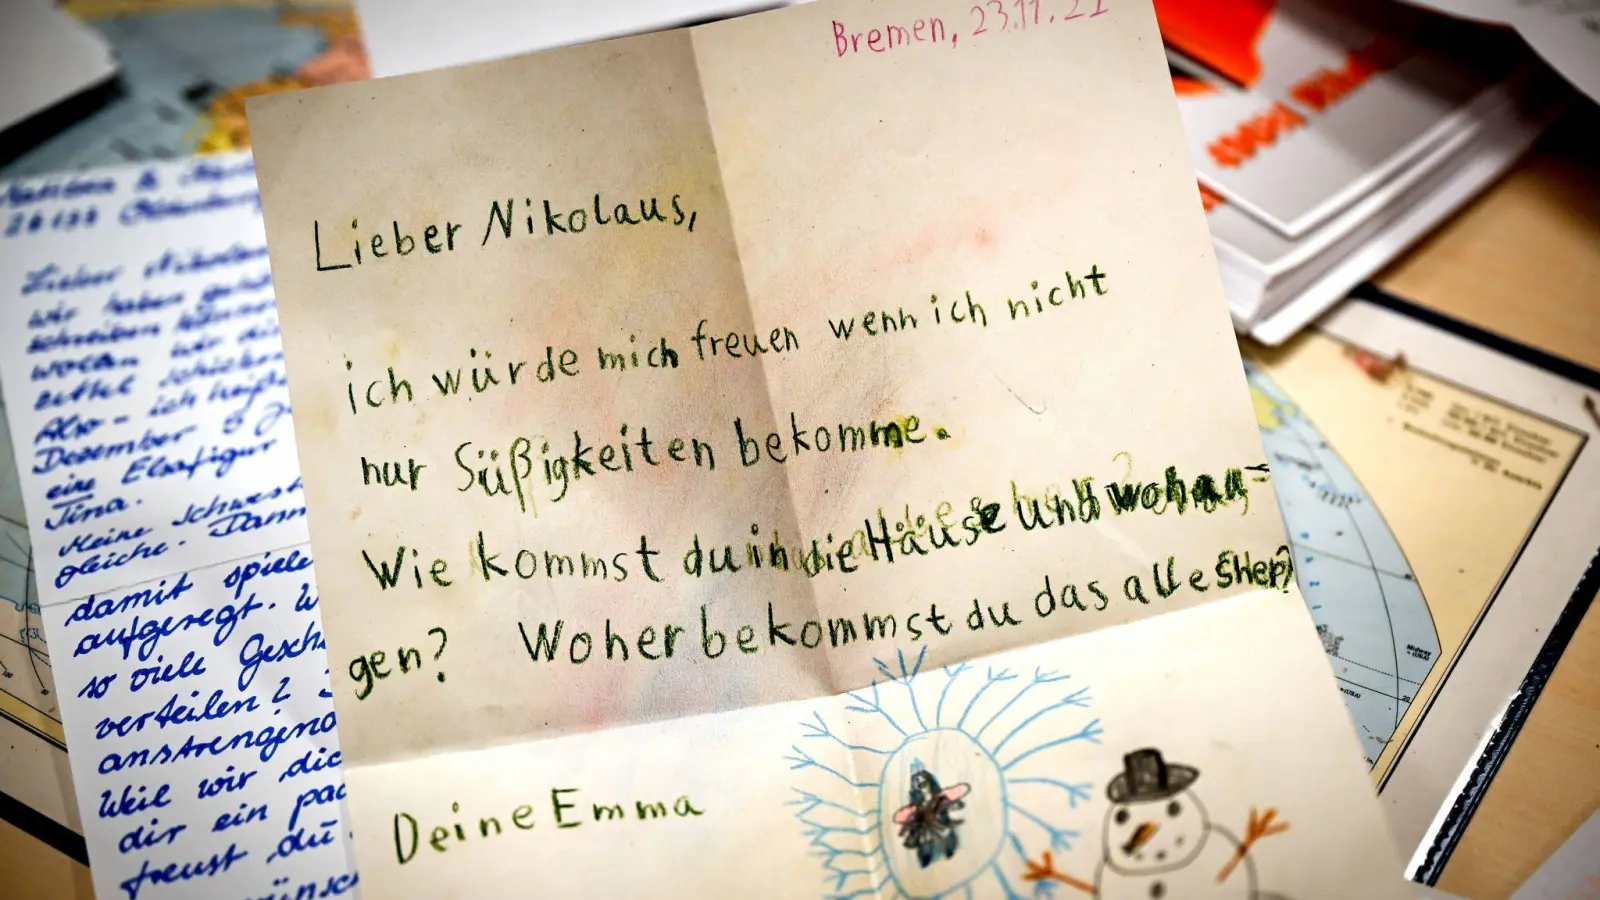 Bremen, 23.11.21
Lieber Nikolaus,
ich würde mich freuen wenn ich nicht
nur Süßigkeiten bekomme.
Wie kommst du in die Häuse und wohau=
gen? Woher bekommst du das alles her?
Deine Emma
Lieber Nikolau
wir haben
schreiben
wollen wir di
zettel schicken
Also - ich heiß
Dezember 5 J
eine Elsafigur
Tina.
Meine Schwest
gleiche. Dann
damit spiele
aufgeregt. W
so viele Gesch
verteilen?
anstrengend
Weil wir dic
dir ein pa
freust du
wünsc
Midway
(USA)
(USA)